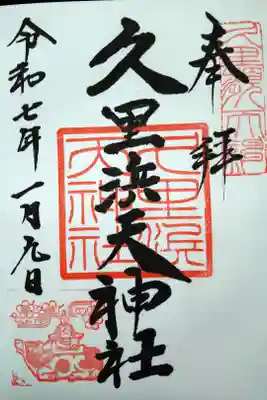 奉拝
久里浜天神社
令和七年一月九日
久里浜天神社